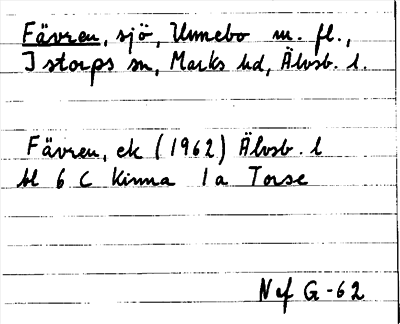 Fävren, sjö, Unnebo m. fl.,
Istorps sn, Marks hd, Älvsb. l.
Fävren, ek (1962) Älvsb. l
bl 6 C Kinna 1a Torse
Nef G-62